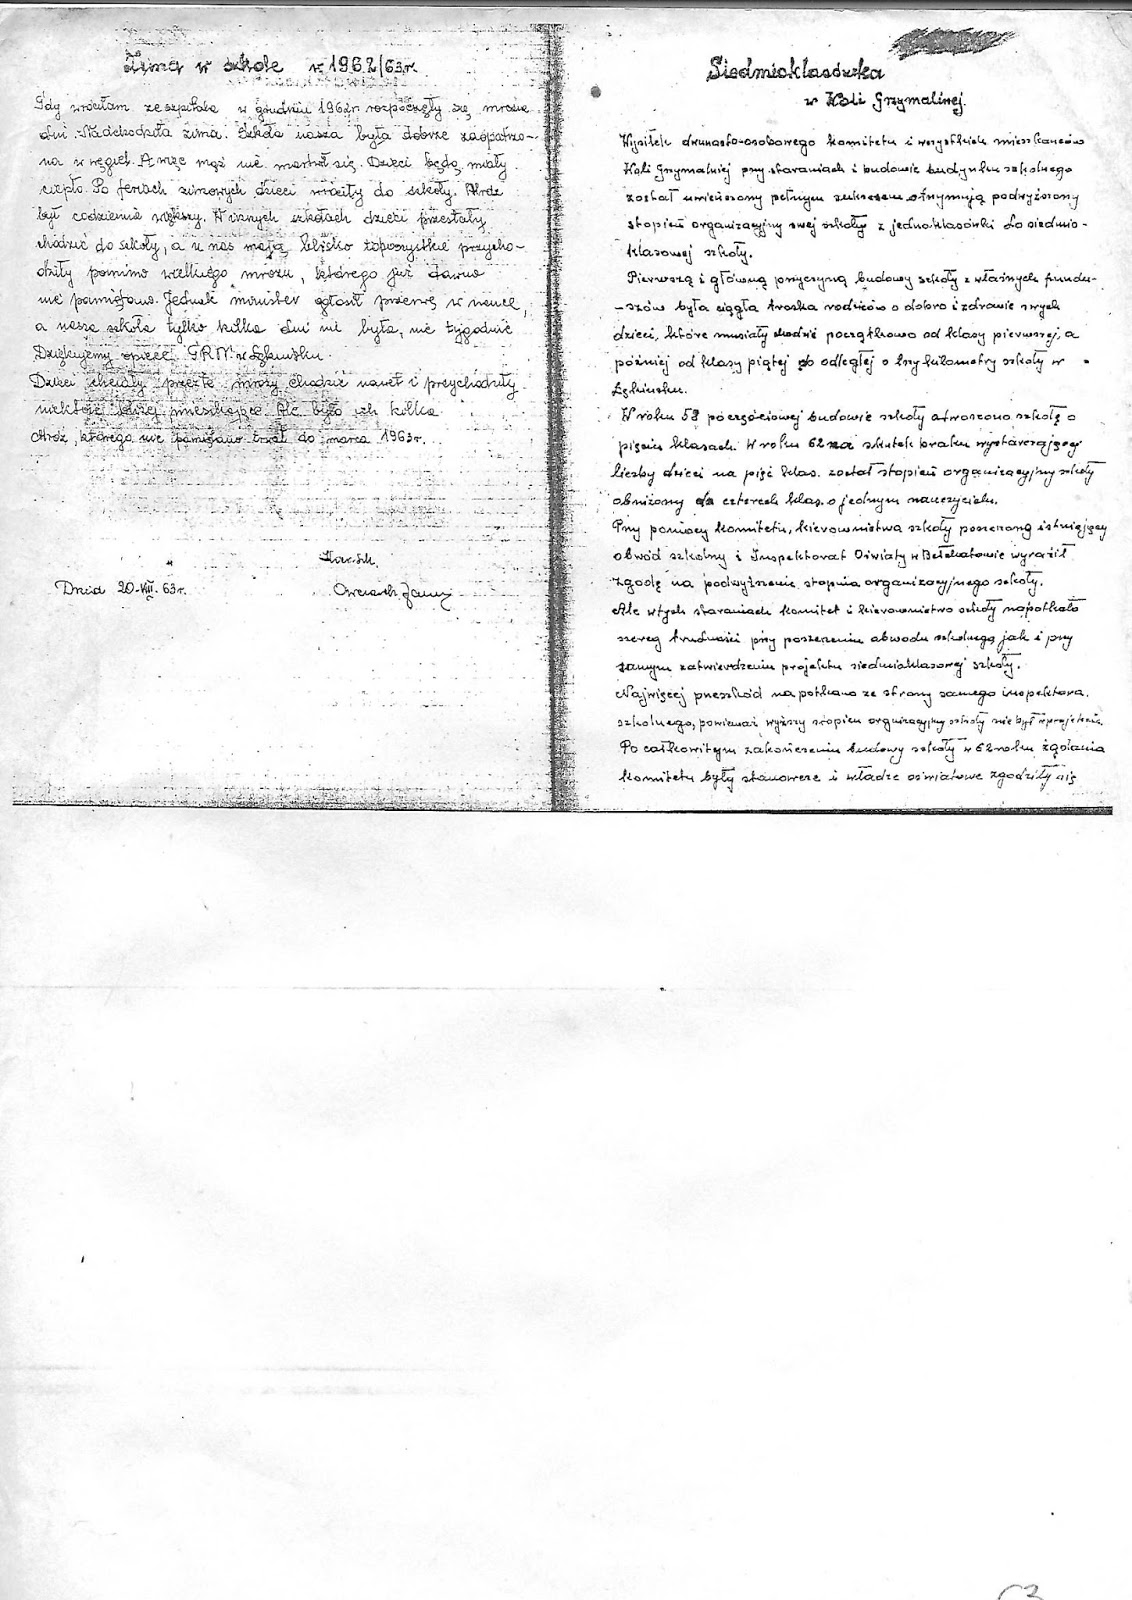 Zima w szkole w 1962/63r.
Gdy wróciłam ze szpitala w grudniu 1962r rozpoczęły się mroźne
dni. Nadchodziła zima. Szkoła nasza była dobrze zaopatrzo-
na w węgiel. A więc mąż nie martwił się. Dzieci będą miały
ciepło. Po feriach zimowych dzieci wróciły do szkoły. Mróz
był codziennie większy. W innych szkołach dzieci przestały
chodzić do szkoły, a u nas mają blisko to wszystkie przycho-
dziły pomimo wielkiego mrozu, którego już dawno
nie pamiętano. Jednak minister ogłosił przerwę w nauce,
a nasza szkoła tylko kilka dni nie była, nie tygodnie
Dziękujemy opiece GRN w Łękińsku.
Dzieci chciały przez te mrozy chodzić nawet i przychodziły
niektóre bliżej mieszkające. Ale było ich kilka
Mróz, którego nie pamiętano trwał do marca 1963r.
Dnia 20-VIII-63r.
Siedmioklasówka
w Woli Grzymalinej.
Wysiłek dwunasto-osobowego komitetu i wszystkich mieszkańców
Woli Grzymalinej przy staraniach i budowie budynku szkolnego
został uwieńczony pełnym sukcesem otrzymują podwyższony
stopień organizacyjny swej szkoły z jednoklasówki do siedmio-
klasowej szkoły.
Pierwszą i główną przyczyną budowy szkoły z własnych fundu-
-szów była ciągła troska rodziców o dobro i zdrowie swych
dzieci, które musiały chodzić początkowo od klasy pierwszej, a
później od klasy piątej do odległej o trzy kilometry szkoły w
Łękińsku.
W roku 58 po częściowej budowie szkoły otworzono szkołę o
pięciu klasach. W roku 62 na skutek braku wystarczającej
liczby dzieci na pięć klas. został stopień organizacyjny szkoły
obniżony do czterech klas. o jednym nauczycielu.
Przy pomocy komitetu, kierownictwa szkoły poszerzono istniejący
obwód szkolny i Inspektorat Oświaty w Bełchatowie wyraził
zgodę na podwyższenie stopnia organizacyjnego szkoły.
Ale w tych staraniach komitet i kierownictwo szkoły napotkało
szereg trudności przy poszerzeniu obwodu szkolnego jak i przy
samym zatwierdzeniu projektu siedmioklasowej szkoły.
Najwięcej przeszkód napotkano ze strony samego inspektora
szkolnego, ponieważ wyższy stopień organizacyjny szkoły nie był w projekcie.
Po całkowitym zakończeniu budowy szkoły w 62 roku żądania
komitetu były stanowcze i władze oświatowe zgodziły się